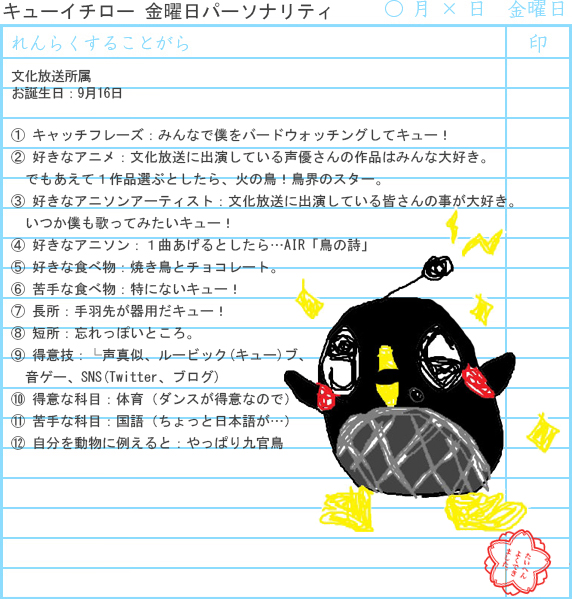 キューイチロー 金曜日パーソナリティ
〇 月 × 日　金曜日
れんらくすることがら
印
文化放送所属
お誕生日：9月16日
① キャッチフレーズ：みんなで僕をバードウォッチングしてキュー！
② 好きなアニメ：文化放送に出演している声優さんの作品はみんな大好き。
でもあえて１作品選ぶとしたら、火の鳥！鳥界のスター。
③ 好きなアニソンアーティスト：文化放送に出演している皆さんの事が大好き。
いつか僕も歌ってみたいキュー！
④ 好きなアニソン：１曲あげるとしたら…AIR「鳥の詩」
⑤ 好きな食べ物：焼き鳥とチョコレート。
⑥ 苦手な食べ物：特にないキュー！
⑦ 長所：手羽先が器用だキュー！
⑧ 短所：忘れっぽいところ。
⑨ 得意技：└声真似、ルービック(キュー)ブ、
音ゲー、SNS(Twitter、ブログ)
⑩ 得意な科目：体育（ダンスが得意なので）
⑪ 苦手な科目：国語（ちょっと日本語が…）
⑫ 自分を動物に例えると：やっぱり九官鳥
たいへん
よくできました